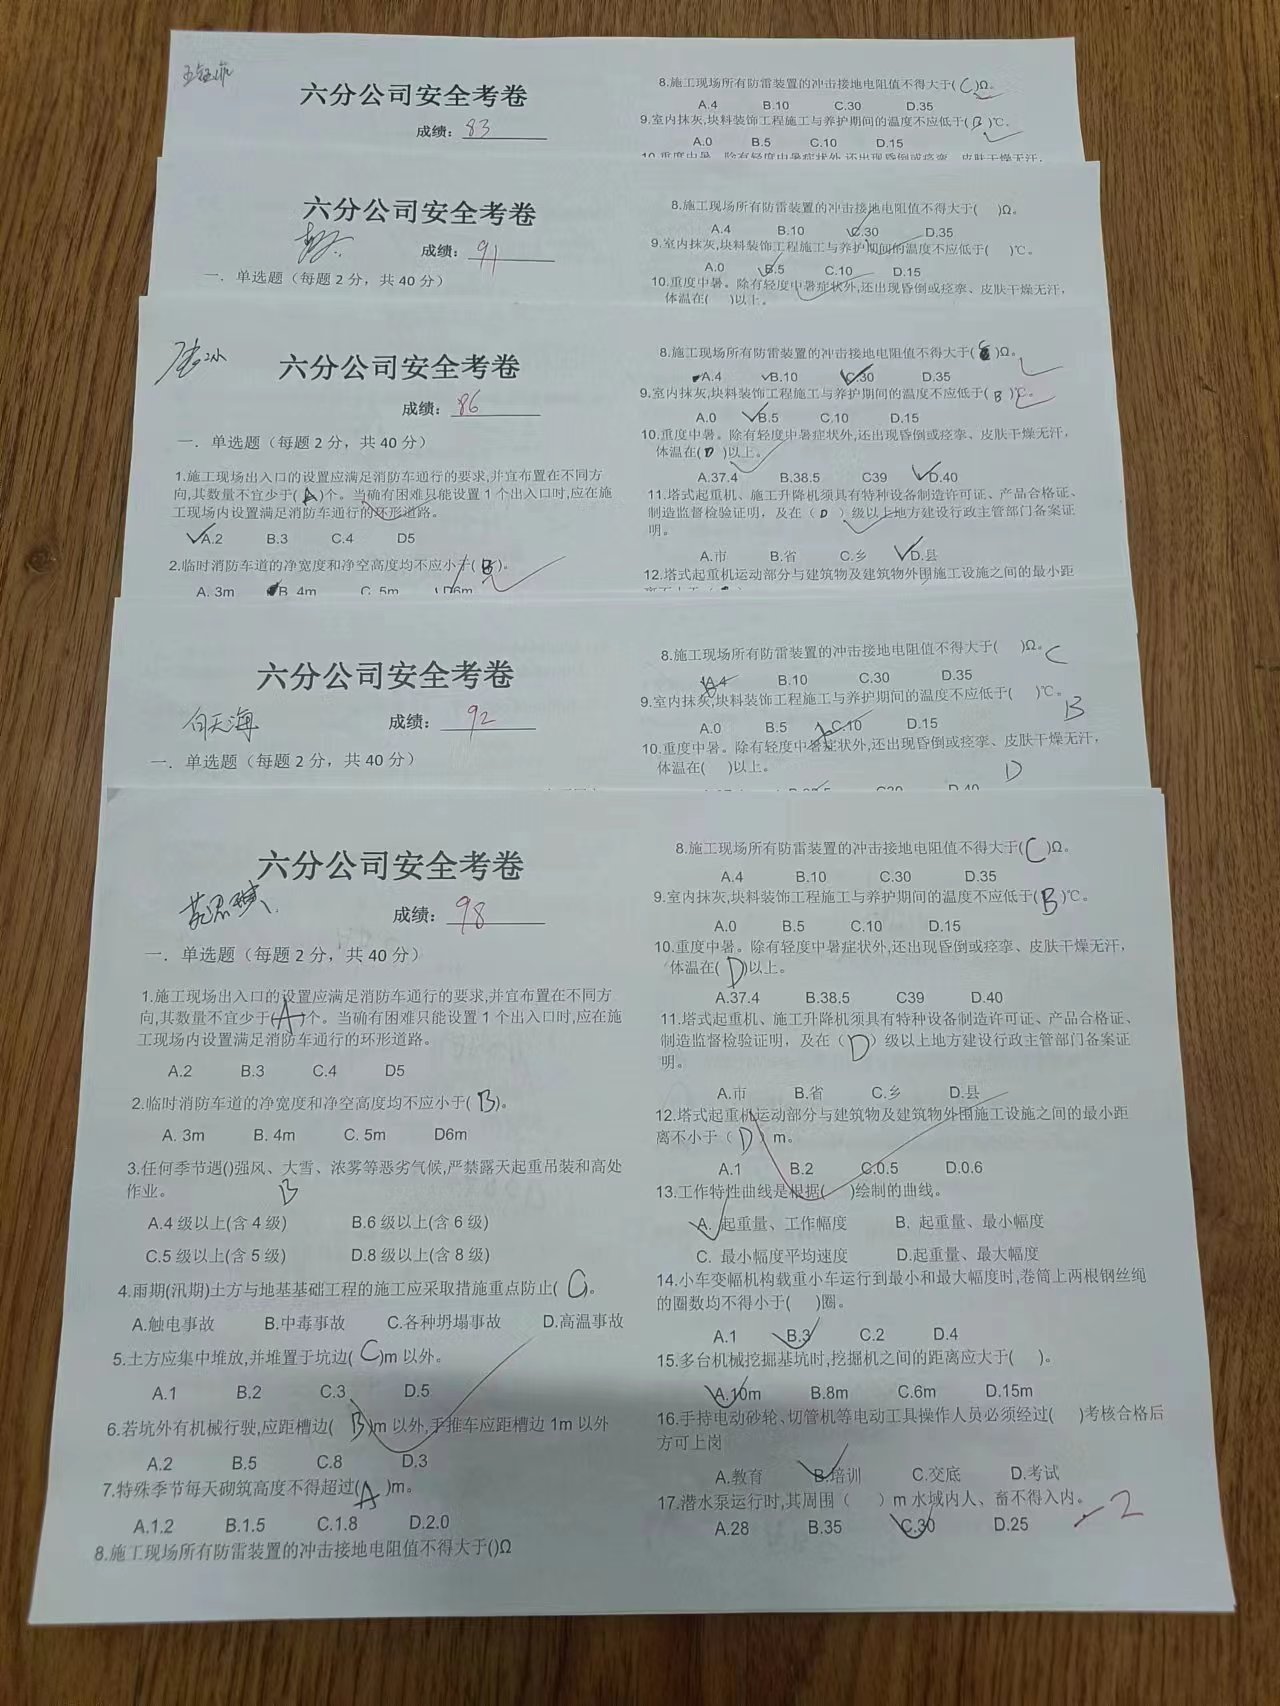 六分公司安全考卷
成绩: 83
8.施工现场所有防雷装置的冲击接地电阻值不得大于( C )Ω。
A.4 B.10 C.30 D.35
9.室内抹灰,块料装饰工程施工与养护期间的温度不应低于( B )℃。
A.0 B.5 C.10 D.15
10.重度中暑。除有轻度中暑症状外,还出现昏倒或痉挛、皮肤干燥无汗,
六分公司安全考卷
成绩: 91
一.单选题（每题 2 分，共 40 分）
8.施工现场所有防雷装置的冲击接地电阻值不得大于( )Ω。
A.4 B.10 C.30 D.35
9.室内抹灰,块料装饰工程施工与养护期间的温度不应低于( )℃。
A.0 B.5 C.10 D.15
10.重度中暑。除有轻度中暑症状外,还出现昏倒或痉挛、皮肤干燥无汗,
体温在( )以上。
六分公司安全考卷
成绩: 86
一.单选题（每题 2 分，共 40 分）
1.施工现场出入口的设置应满足消防车通行的要求,并宜布置在不同方
向,其数量不宜少于( A )个。当确有困难只能设置 1 个出入口时,应在施
工现场内设置满足消防车通行的环形道路。
A.2 B.3 C.4 D5
2.临时消防车道的净宽度和净空高度均不应小于( B )。
A. 3m B. 4m C. 5m D6m
8.施工现场所有防雷装置的冲击接地电阻值不得大于( C )Ω。
A.4 B.10 C.30 D.35
9.室内抹灰,块料装饰工程施工与养护期间的温度不应低于( B )℃。
A.0 B.5 C.10 D.15
10.重度中暑。除有轻度中暑症状外,还出现昏倒或痉挛、皮肤干燥无汗,
体温在( D )以上。
A.37.4 B.38.5 C39 D.40
11.塔式起重机、施工升降机须具有特种设备制造许可证、产品合格证、
制造监督检验证明，及在（ D ）级以上地方建设行政主管部门备案证
明。
A.市 B.省 C.乡 D.县
12.塔式起重机运动部分与建筑物及建筑物外围施工设施之间的最小距
六分公司安全考卷
向天海
成绩: 92
一.单选题（每题 2 分，共 40 分）
8.施工现场所有防雷装置的冲击接地电阻值不得大于( )Ω。 C
A.4 B.10 C.30 D.35
9.室内抹灰,块料装饰工程施工与养护期间的温度不应低于( )℃。 B
A.0 B.5 C.10 D.15
10.重度中暑。除有轻度中暑症状外,还出现昏倒或痉挛、皮肤干燥无汗,
体温在( )以上。 D
六分公司安全考卷
成绩: 98
一.单选题（每题 2 分，共 40 分）
1.施工现场出入口的设置应满足消防车通行的要求,并宜布置在不同方
向,其数量不宜少于( A )个。当确有困难只能设置 1 个出入口时,应在施
工现场内设置满足消防车通行的环形道路。
A.2 B.3 C.4 D5
2.临时消防车道的净宽度和净空高度均不应小于( B )。
A. 3m B. 4m C. 5m D6m
3.任何季节遇()强风、大雪、浓雾等恶劣气候,严禁露天起重吊装和高处
作业。 B
A.4 级以上(含 4 级) B.6 级以上(含 6 级)
C.5 级以上(含 5 级) D.8 级以上(含 8 级)
4.雨期(汛期)土方与地基基础工程的施工应采取措施重点防止( C )。
A.触电事故 B.中毒事故 C.各种坍塌事故 D.高温事故
5.土方应集中堆放,并堆置于坑边( C )m 以外。
A.1 B.2 C.3 D.5
6.若坑外有机械行驶,应距槽边( B )m 以外,手推车应距槽边 1m 以外
A.2 B.5 C.8 D.3
7.特殊季节每天砌筑高度不得超过( A )m。
A.1.2 B.1.5 C.1.8 D.2.0
8.施工现场所有防雷装置的冲击接地电阻值不得大于()Ω
8.施工现场所有防雷装置的冲击接地电阻值不得大于( C )Ω。
A.4 B.10 C.30 D.35
9.室内抹灰,块料装饰工程施工与养护期间的温度不应低于( B )℃。
A.0 B.5 C.10 D.15
10.重度中暑。除有轻度中暑症状外,还出现昏倒或痉挛、皮肤干燥无汗,
体温在( D )以上。
A.37.4 B.38.5 C39 D.40
11.塔式起重机、施工升降机须具有特种设备制造许可证、产品合格证、
制造监督检验证明，及在（ D ）级以上地方建设行政主管部门备案证
明。
A.市 B.省 C.乡 D.县
12.塔式起重机运动部分与建筑物及建筑物外围施工设施之间的最小距
离不小于（ D ）m。
A.1 B.2 C.0.5 D.0.6
13.工作特性曲线是根据( )绘制的曲线。
A. 起重量、工作幅度 B. 起重量、最小幅度
C. 最小幅度平均速度 D.起重量、最大幅度
14.小车变幅机构载重小车运行到最小和最大幅度时,卷筒上两根钢丝绳
的圈数均不得小于( )圈。
A.1 B.3 C.2 D.4
15.多台机械挖掘基坑时,挖掘机之间的距离应大于( )。
A.10m B.8m C.6m D.15m
16.手持电动砂轮、切管机等电动工具操作人员必须经过( )考核合格后
方可上岗
A.教育 B.培训 C.交底 D.考试
17.潜水泵运行时,其周围（ ）m 水域内人、畜不得入内。
A.28 B.35 C.30 D.25 -2